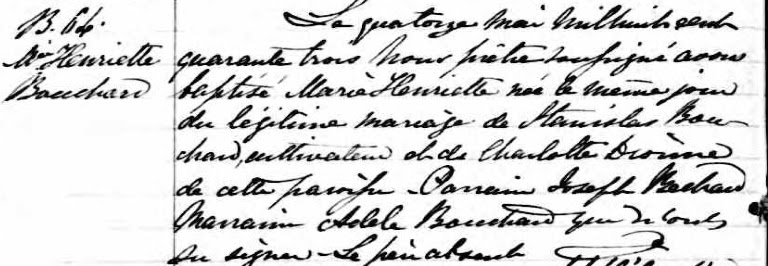 B. 64.
Mie Henriette
Bouchard
Le quatorze Mai Mil huit cent
quarante trois Nous prêtre soussigné avons
baptisé Marie Henriette née le même jour
du légitime mariage de Stanislas Bou-
chard, cultivateur et de Charlotte
de cette paroisse - Parrain Joseph Bouchard
Marraine Adele Bouchard qui n'ont
su signer - Le père absent